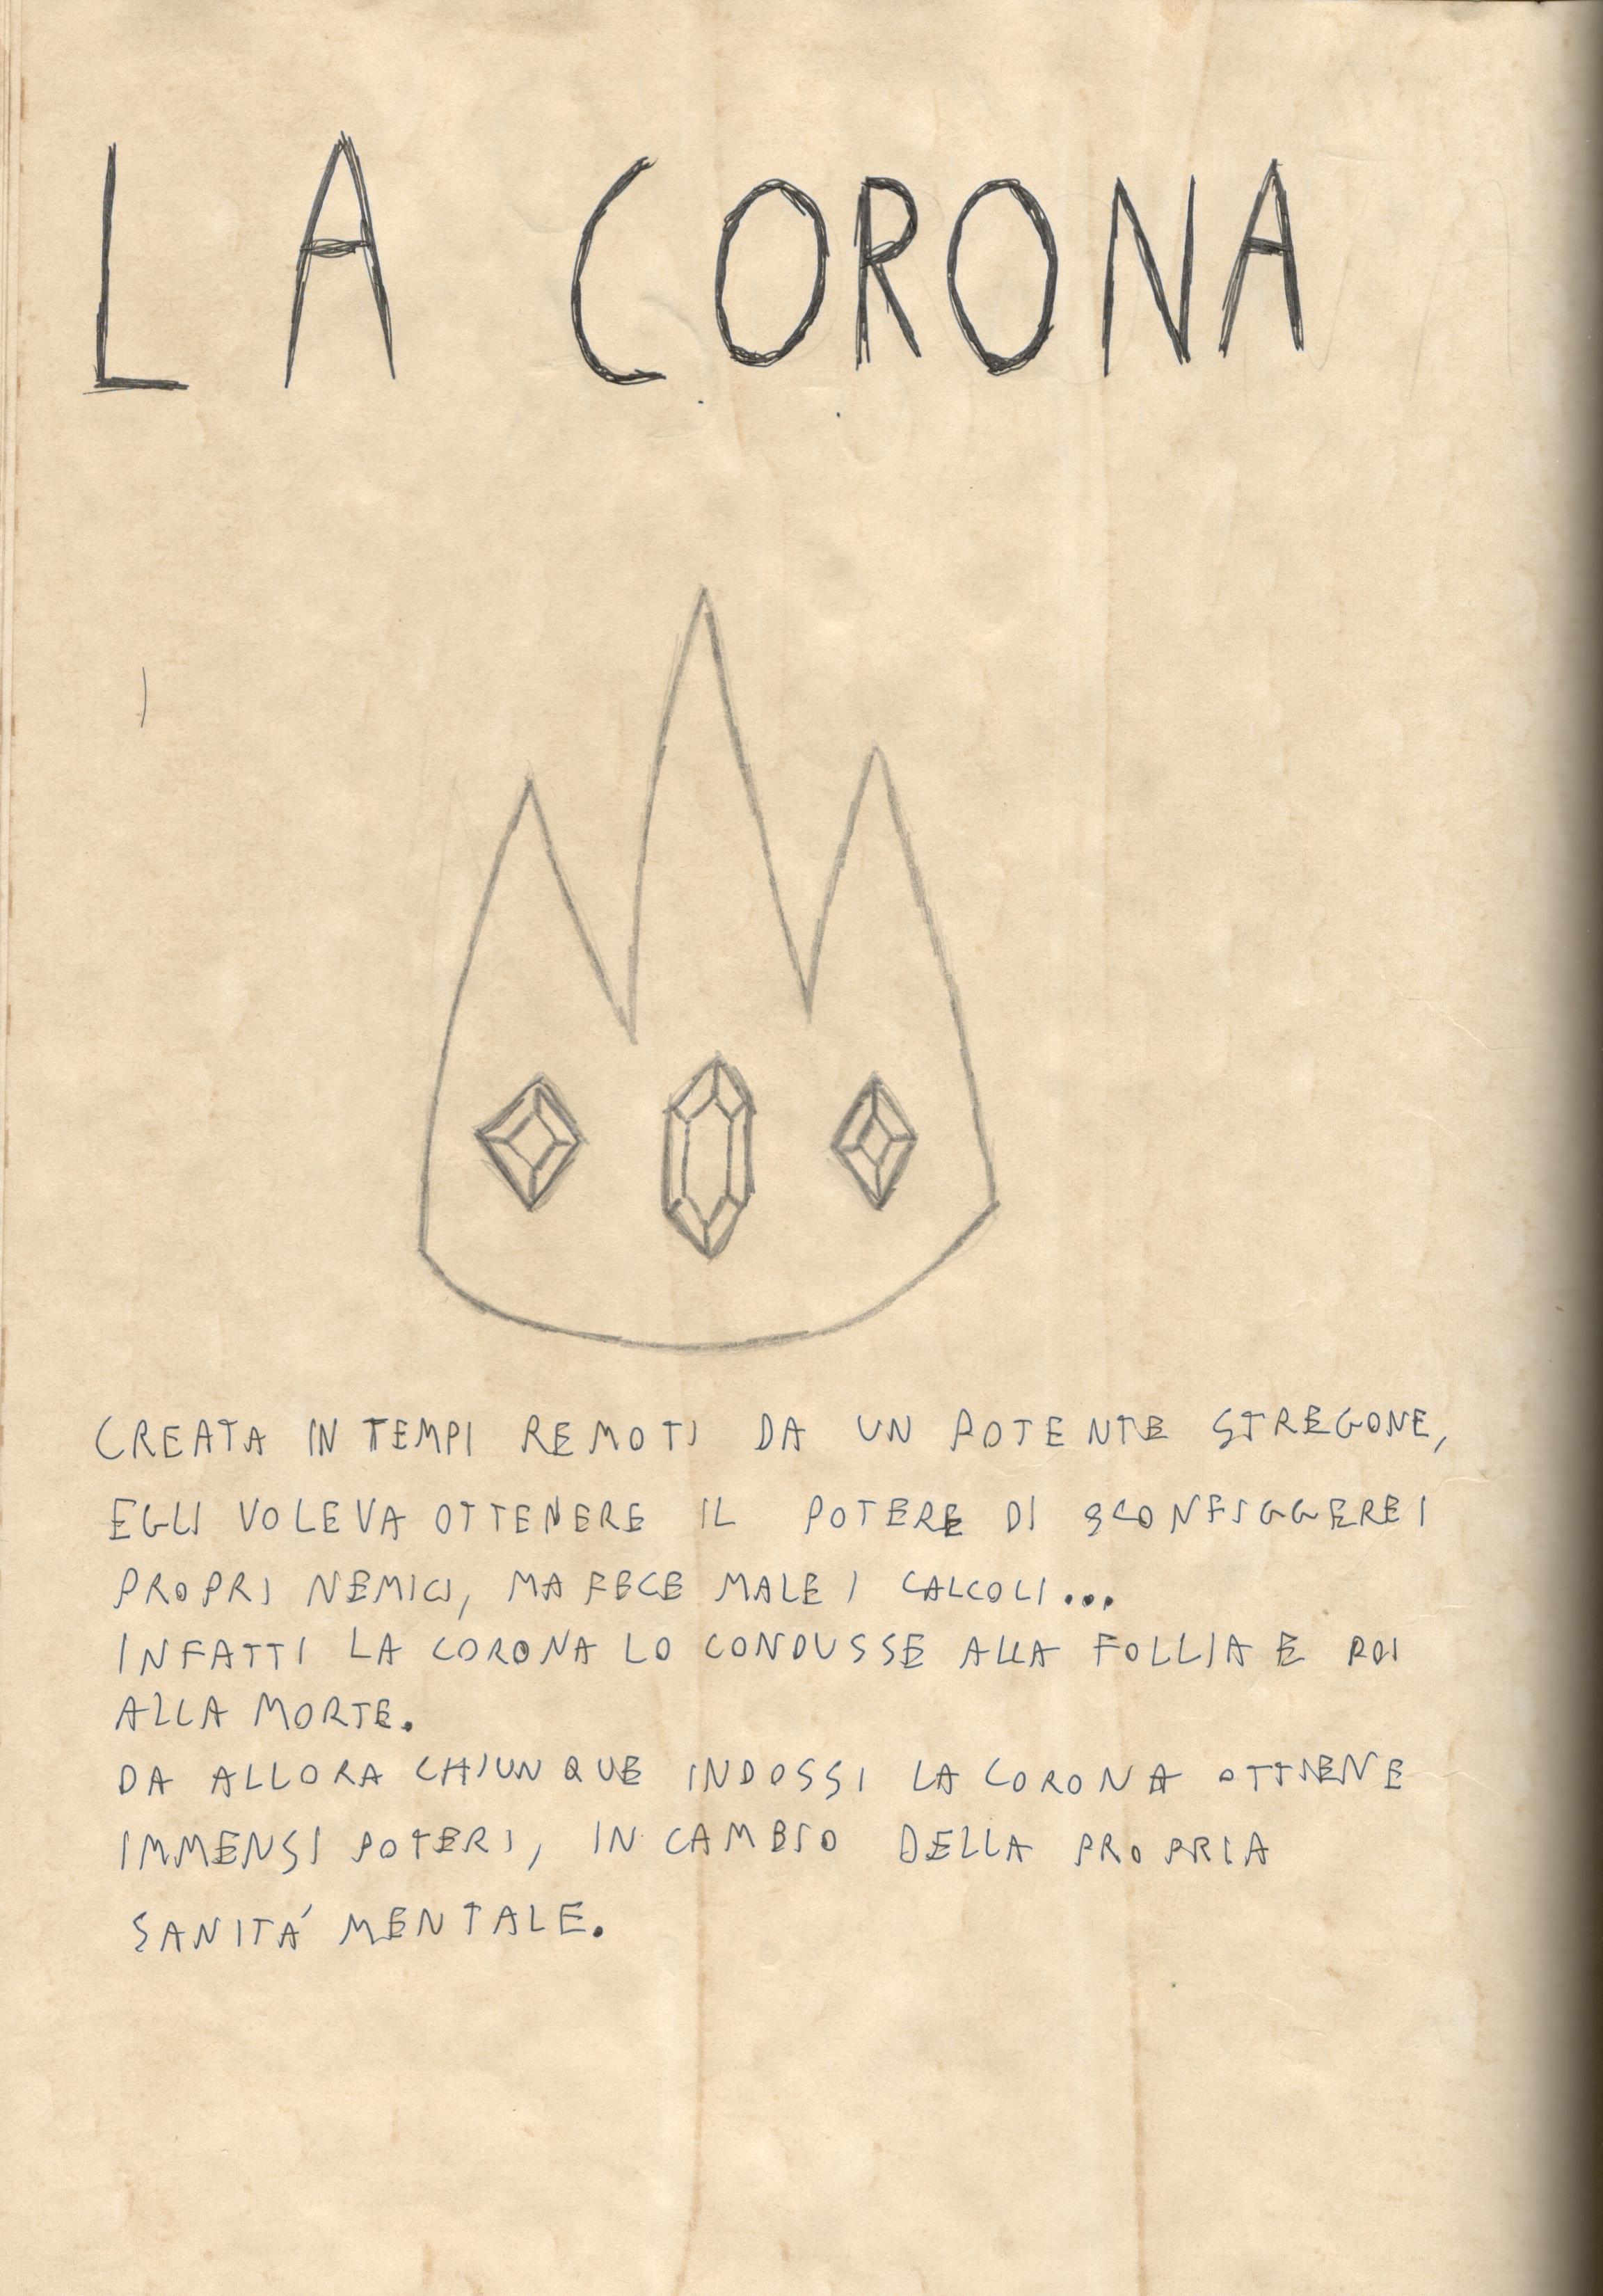 LA CORONA
CREATA IN TEMPI REMOTI DA UN POTENTE STREGONE,
EGLI VOLEVA OTTENERE IL POTERE DI SCONFIGGERE I
PROPRI NEMICI, MA FECE MALE I CALCOLI...
INFATTI LA CORONA LO CONDUSSE ALLA FOLLIA E POI
ALLA MORTE.
DA ALLORA CHIUNQUE INDOSSI LA CORONA OTTIENE
IMMENSI POTERI, IN CAMBIO DELLA PROPRIA
SANITÁ MENTALE.